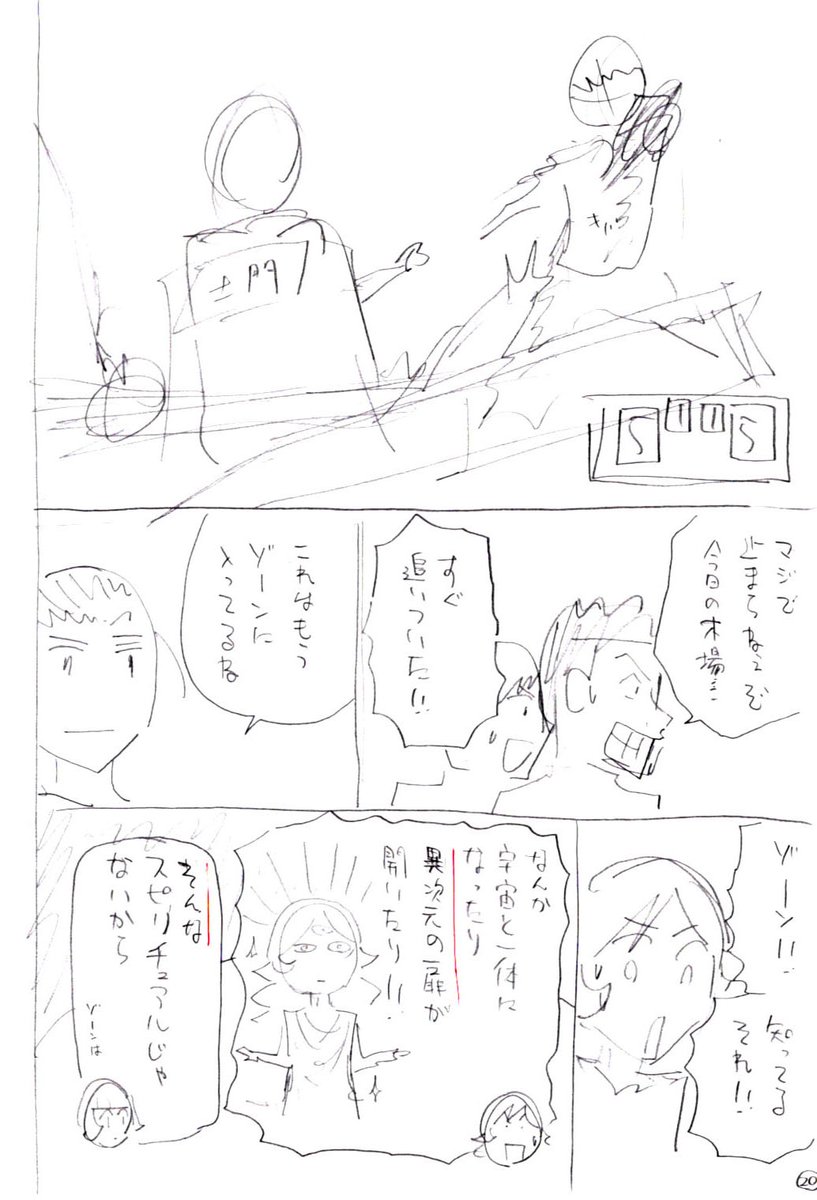 土門
きば
5 1 1 5
マジで
止まらねえぞ
今日の木場…
すぐ
追いついた!!
これはもう
ゾーンに
入ってるな
ゾーン!!
知ってる
それ!!
なんか
宇宙と一体に
なったり
異次元の扉が
開いたり!!
そんな
スピリチュアルじゃ
ないから
ゾーンは
20